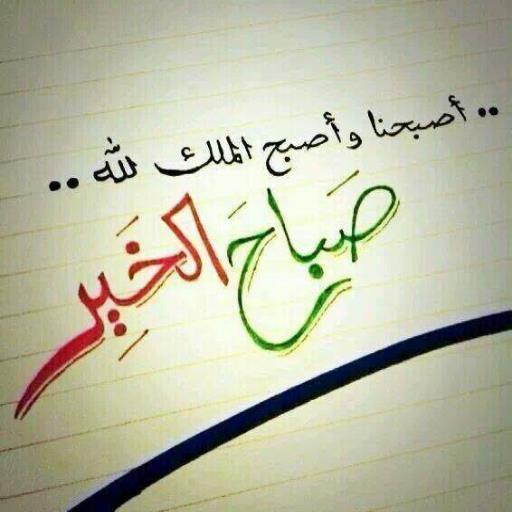 .. أصبحنا وأصبح الملك لله ..
صَباحَ الخَيِر